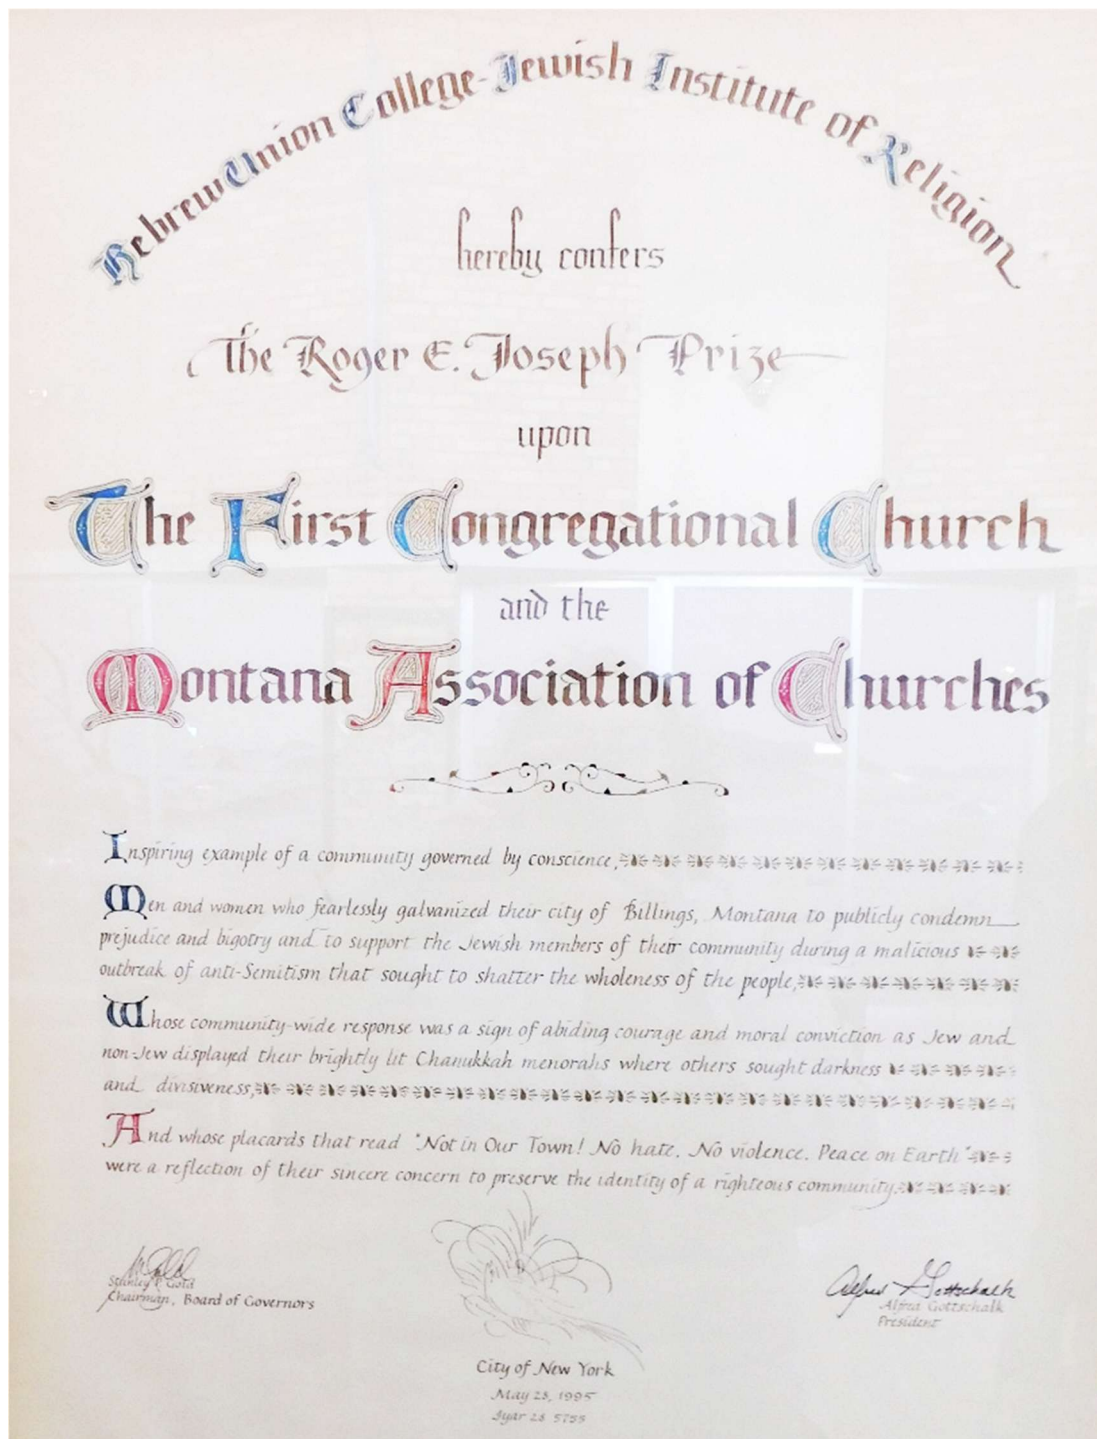 Hebrew Union College-Jewish Institute of Religion
hereby confers
The Roger E. Joseph Prize
upon
The First Congregational Church
and the
Montana Association of Churches
Inspiring example of a community governed by conscience,
Men and women who fearlessly galvanized their city of Billings, Montana to publicly condemn
prejudice and bigotry and to support the Jewish members of their community during a malicious
outbreak of anti-Semitism that sought to shatter the wholeness of the people,
Whose community-wide response was a sign of abiding courage and moral conviction as Jew and
non-Jew displayed their brightly lit Chanukkah menorahs where others sought darkness
and divisiveness,
And whose placards that read "Not in Our Town! No hate. No violence. Peace on Earth"
were a reflection of their sincere concern to preserve the identity of a righteous community.
Stanley P. Gold
Chairman, Board of Governors
Alfred Gottschalk
Alfred Gottschalk
President
City of New York
May 28, 1995
Iyar 28 5755